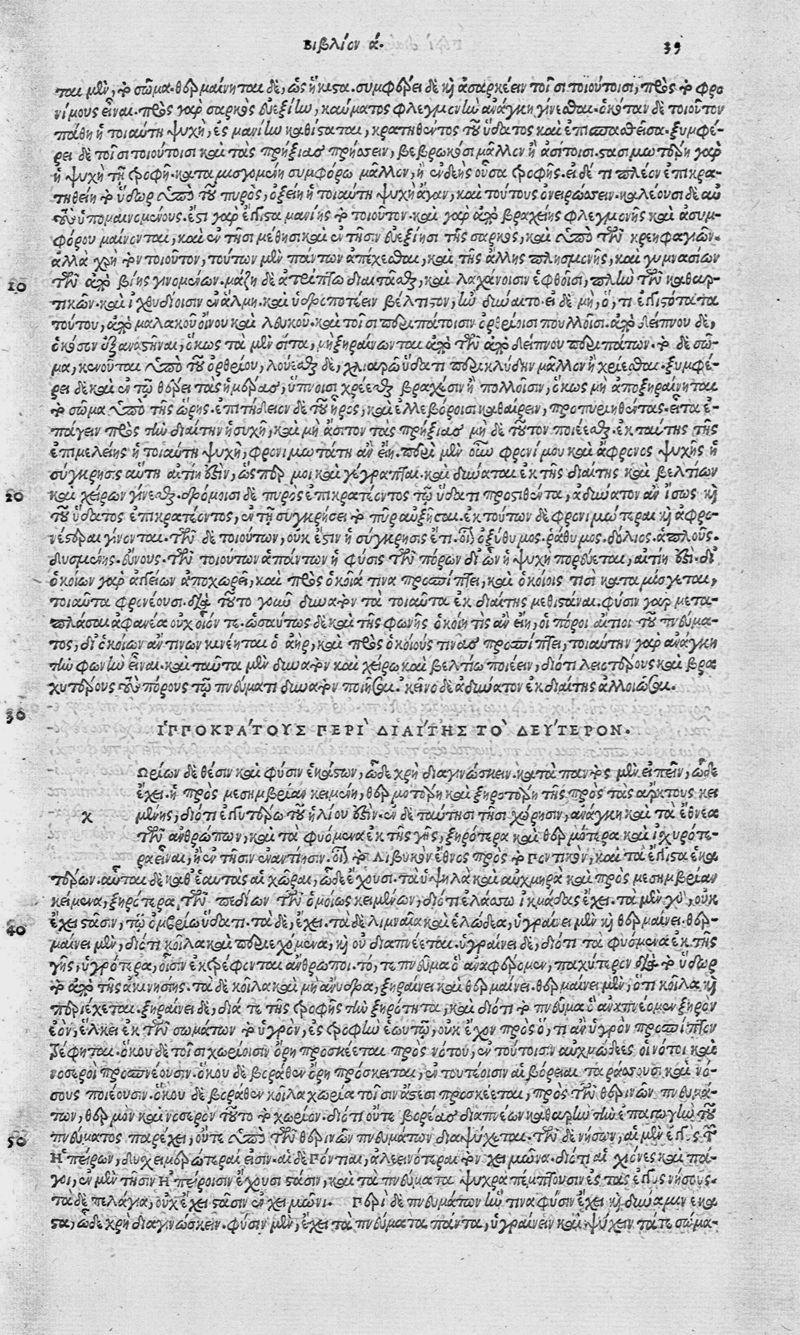 Βιβλίον ά. 39
ται μὲν, τὸ σῶμα. θερμαίνεται δὲ, ὡς ἥκιστα. συμφέρει δὲ καὶ ἀσαρκέειν τοῖσι τοιούτοισι, πρὸς τὸ φρο
νίμους εἶναι. πρὸς γὰρ σαρκὸς εὐεξίην, καύματος φλεγμονὴν ἀνάγκη γίνεσθαι. ὁκόταν δὲ τοιοῦτον
πάθη ἡ τοιαύτη ψυχὴ, ἐς μανίην καθίσταται, κρατηθέντος τοῦ ὕδατος καὶ ἐπισπασθεῖσα. ξυμφέ-
ρει δὲ τοῖσι τοιούτοισι καὶ τὰς πρήξιας πρήσσειν, βεβρωκόσι μᾶλλον ἢ ἀσίτοισι. στασιμωτέρη γὰρ
ἡ ψυχὴ τῇ τροφῇ. καταμισγομένη συμφόρῳ μᾶλλον, ἢ ἐνδεὴς οὖσα τροφῆς. εἰ δέ τι πλέον ἐπικρα-
τηθείη τὸ ὕδωρ ὑπὸ τοῦ πυρὸς, ὀξείη ἡ τοιαύτη ψυχὴ ἄγαν, καὶ τούτους ὀνειρώσσειν. καλέουσι δὲ αὐ
τοὺς ὑπομαινομένους. ἔστι γὰρ ἔγγιστα μανίης τὸ τοιοῦτον. καὶ γὰρ ἀπὸ βραχείης φλεγμονῆς καὶ ἀσυμ-
φόρου μαίνονται, καὶ ἐν τῇσι μέθησι καὶ ἐν τῇσιν εὐεξίησι τῆς σαρκὸς, καὶ ὑπὸ τῶν κρεηφαγιῶν.
ἀλλὰ χρὴ τὸν τοιοῦτον, τούτων μὲν πάντων ἀπέχεσθαι, καὶ τῆς ἄλλης πλησμονῆς, καὶ γυμνασίων
10 τῶν ἀπὸ βίης γινομένων. μάζῃ δὲ ἀτρίπτῳ διαιτᾶσθαι, καὶ λαχάνοισιν ἑφθοῖσι, πλὴν τῶν καθαρ-
τικῶν. καὶ ἰχθυδίοισιν ἐν ἅλμῃ. καὶ ὑδροποτέειν βέλτιστον, ἢν δύναιτο. εἰ δὲ μὴ, ὅ, τι ἐγγιστότατα
τούτου, ἀπὸ μαλακοῦ οἴνου καὶ λευκοῦ. καὶ τοῖσι περιπάτοισιν ὀρθρίοισι πουλλοῖσι. ἀπὸ δείπνου δὲ,
ὁκόσον ἐξαναστῆναι, ὅκως τὰ μὲν σῖτα, μὴ ξηραίνωνται ἀπὸ τῶν ἀπὸ δείπνου περιπάτων. τὸ δὲ σῶ-
μα, κενοῦται ὑπὸ τοῦ ὀρθρίου, λούεσθαι δὲ, χλιαρῷ ὕδατι περικλύδην μᾶλλον ἢ χρίεσθαι. ξυμφέ-
ρει δὲ καὶ ἐν τῷ θέρει τὰς ἡμέρας, ὕπνοισι χρέεσθαι βραχέσιν ἢ πολλοῖσιν, ὅκως μὴ ἀποξηραίνηται
τὸ σῶμα ὑπὸ τῆς ὥρης. ἐπιτήδειον δὲ τοῦ ἦρος, καὶ ἐλλεβόροισι καθαίρειν, προπυριηθέντας. εἶτα ἐ-
πάγειν πρὸς τὴν δίαιτην ἡσυχῆ, καὶ μὴ ἄσιτον τὰς πρήξιας μὴ δὲ τοῦτον ποιέεσθαι. ἐκ ταύτης τῆς
ἐπιμελείης ἡ τοιαύτη ψυχὴ, φρονιμωτάτη ἂν εἴη. περὶ μὲν οὖν φρονίμου καὶ ἄφρονος ψυχῆς ἡ
σύγκρησις αὕτη αἰτίη ἐστὶν, ὥσπερ μοι καὶ γέγραπται. καὶ δύναται ἐκ τῆς διαίτης καὶ βελτίων
20 καὶ χείρων γίνεσθαι. δρόμοισι δὲ πυρὸς ἐπικρατέοντος τῷ ὕδατι προστιθέναι, ἀδύνατον ἂν ἴσως καὶ
τοῦ ὕδατος ἐπικρατέοντος, ἐν τῇ συγκρήσει τὸ πῦρ αὐξῆσαι. ἐκ τούτων δὲ φρονιμώτεραι καὶ ἀφρο-
νέστεραι γίνονται. τῶν δὲ τοιούτων, οὐκ ἔστιν ἡ σύγκρησις ἔτι. οἷον ὀξύθυμος. ῥάθυμος. δόλιος. ἁπλοῦς.
δυσμενής. εὔνους. τῶν τοιούτων ἁπάντων ἡ φύσις τῶν πόρων δι᾽ ὧν ἡ ψυχὴ πορεύεται, αἰτίη ἐστί. δι᾽
ὁκοίων γὰρ ἀγγείων ἀποχωρεῖ, καὶ πρὸς ὁκοῖά τινα προσπίπτει, καὶ ὁκοίοις τισὶ καταμίσγεται,
τοιαῦτα φρονέουσι. διὰ τοῦτο γοῦν δυνατὸν τὰ τοιαῦτα ἐκ διαίτης μεθιστάναι. φύσιν γὰρ μετα-
πλάσαι ἀφανέα οὐχ οἷόν τε. ὡσαύτως δὲ καὶ τῆς φωνῆς ὁκοίη τις ἂν εἴη, οἱ πόροι αἴτιοι τοῦ πνεύμα-
τος, δι᾽ ὁκοίων ἄν τινων κινέηται ὁ ἀὴρ, καὶ πρὸς ὁκοίους τινας προσπίπτει, τοιαύτην γὰρ ἀνάγκη
τὴν φωνὴν εἶναι. καὶ ταῦτα μὲν δυνατὸν καὶ χείρω καὶ βελτίω ποιέειν, διότι λειοτέρους καὶ βρα
χυτέρους τοὺς πόρους τῷ πνεύματι δυνατὸν ποιῆσαι. κεῖνο δὲ ἀδύνατον ἐκ διαίτης ἀλλοιῶσαι.
30
ἹΠΠΟΚΡΆΤΟΥΣ ΠΕΡΙ ΔΙΑΙΤΗΣ ΤΟ ΔΕΥΤΕΡΟΝ.
χ
Ωρίων δὲ θέσιν καὶ φύσιν ἑκάστων, ὧδε χρὴ διαγινώσκειν. κατὰ παντὸς μὲν εἰπεῖν, ὧδε
ἔχει. ἡ πρὸς μεσημβρίαν κειμένη, θερμοτέρη καὶ ξηροτέρη τῆς πρὸς τὰς ἄρκτους κει
μένης, διότι ἐγγυτέρω τοῦ ἡλίου ἐστίν. ἐν δὲ ταύτῃσι τῇσι χώρῃσιν, ἀνάγκη καὶ τὰ ἔθνεα
τῶν ἀνθρώπων, καὶ τὰ φυόμενα ἐκ τῆς γῆς, ξηρότερα καὶ θερμότερα καὶ ἰσχυρότε-
ρα εἶναι, ἢ ἐν τῇσιν ἐναντίησιν. οἷον τὸ Λιβυκὸν ἔθνος πρὸς τὸ Ποντικὸν, καὶ τὰ ἔγγιστα ἑκα
τέρων. αὗται δὲ καθ᾽ ἑαυτὰς αἱ χῶραι, ὧδε ἔχουσι. τὰ ὑψηλὰ καὶ αὐχμηρὰ καὶ πρὸς μεσημβρίαν
κείμενα, ξηρότερα τῶν πεδίων τῶν ὁμοίως κειμένων, διότι ἐλάσσω ἰκμάδας ἔχει. τὰ μὲν γὰρ, οὐκ
40 ἔχει στάσιν, τῷ ὀμβρίῳ ὕδατι. τὰ δὲ, ἔχει. τὰ δὲ λιμναῖα καὶ ἑλώδεα, ὑγραίνει μὲν καὶ θερμαίνει. θερ-
μαίνει μὲν, διότι κοῖλα καὶ περιεχόμενα, καὶ οὐ διαπνέεται. ὑγραίνει δὲ, διότι τὰ φυόμενα ἐκ τῆς
γῆς, ὑγρότερα, οἷσιν ἐκτρέφονται ἄνθρωποι. τό, τε πνεῦμα ὃ ἀναφέρομεν, παχύτερον διὰ τὸ ὕδωρ
ἀπὸ τῆς ἀκινησίης. τὰ δὲ κοῖλα καὶ μὴ ἄνυδρα, ξηραίνει καὶ θερμαίνει. θερμαίνει μὲν, ὅτι κοῖλα καὶ
περιέχεται. ξηραίνει δὲ, διά τε τῆς τροφῆς τὴν ξηρότητα, καὶ διότι τὸ πνεῦμα ὃ ἀναπνέομεν ξηρὸν
ἐὸν, ἕλκει ἐκ τῶν σωμάτων τὸ ὑγρὸν, ἐς τροφὴν ἑωυτῷ, οὐκ ἔχον πρὸς ὅ, τι ἂν ὑγρὸν προσπίπτον
τρέφηται. ὅκου δὲ τοῖσι χωρίοισιν ὄρη προσκέεται πρὸς νότου, ἐν τούτοισιν αὐχμώδεες οἱ νότοι καὶ
νοσεροὶ προσπνέουσιν. ὅκου δὲ βορέαθεν ὄρη πρόσκειται, ἐν τουτέοισιν αἱ βορέαι ταράσσουσι καὶ νό-
σους ποιέουσιν. ὅκου δὲ βορέαθεν κοῖλα χωρία τοῖσιν ἄστεσι προσκέεται, πρὸς τῶν θερινῶν πνευμά-
των, θερμὸν καὶ νοσερὸν τοῦτο τὸ χωρίον. διότι οὔτε βορέας διαπνέων καθαρὴν τὴν ἐπαγωγὴν τοῦ
50 πνεύματος παρέχει, οὔτε ὑπὸ τῶν θερινῶν πνευμάτων διαψύχεται. τῶν δὲ νήσων, αἱ μὲν ἐγγὺς τῶν
Ηπείρων, δυσχειμερώτεραί εἰσιν. αἱ δὲ Πόντιαι, ἀλεεινότεραι τὸν χειμῶνα. διότι αἱ χιόνες καὶ πά-
γοι, ἐν μὲν τῇσιν Ηπείροισιν ἔχουσι στάσιν, καὶ τὰ πνεύματα ψυχρὰ πέμπουσιν ἐς τὰς ἐγγὺς νήσους.
τὰ δὲ πελάγια, οὐκ ἔχει στάσιν ἐν χειμῶνι. Περὶ δὲ πνευμάτων ἥν τινα φύσιν ἔχει καὶ δύναμιν ἕκα
στα, ὧδε χρὴ διαγνώσκειν. φύσιν μὲν, ἔχει τὰ πνεύματα πάντα, ὑγραίνειν καὶ ψύχειν τά τε σώμα-